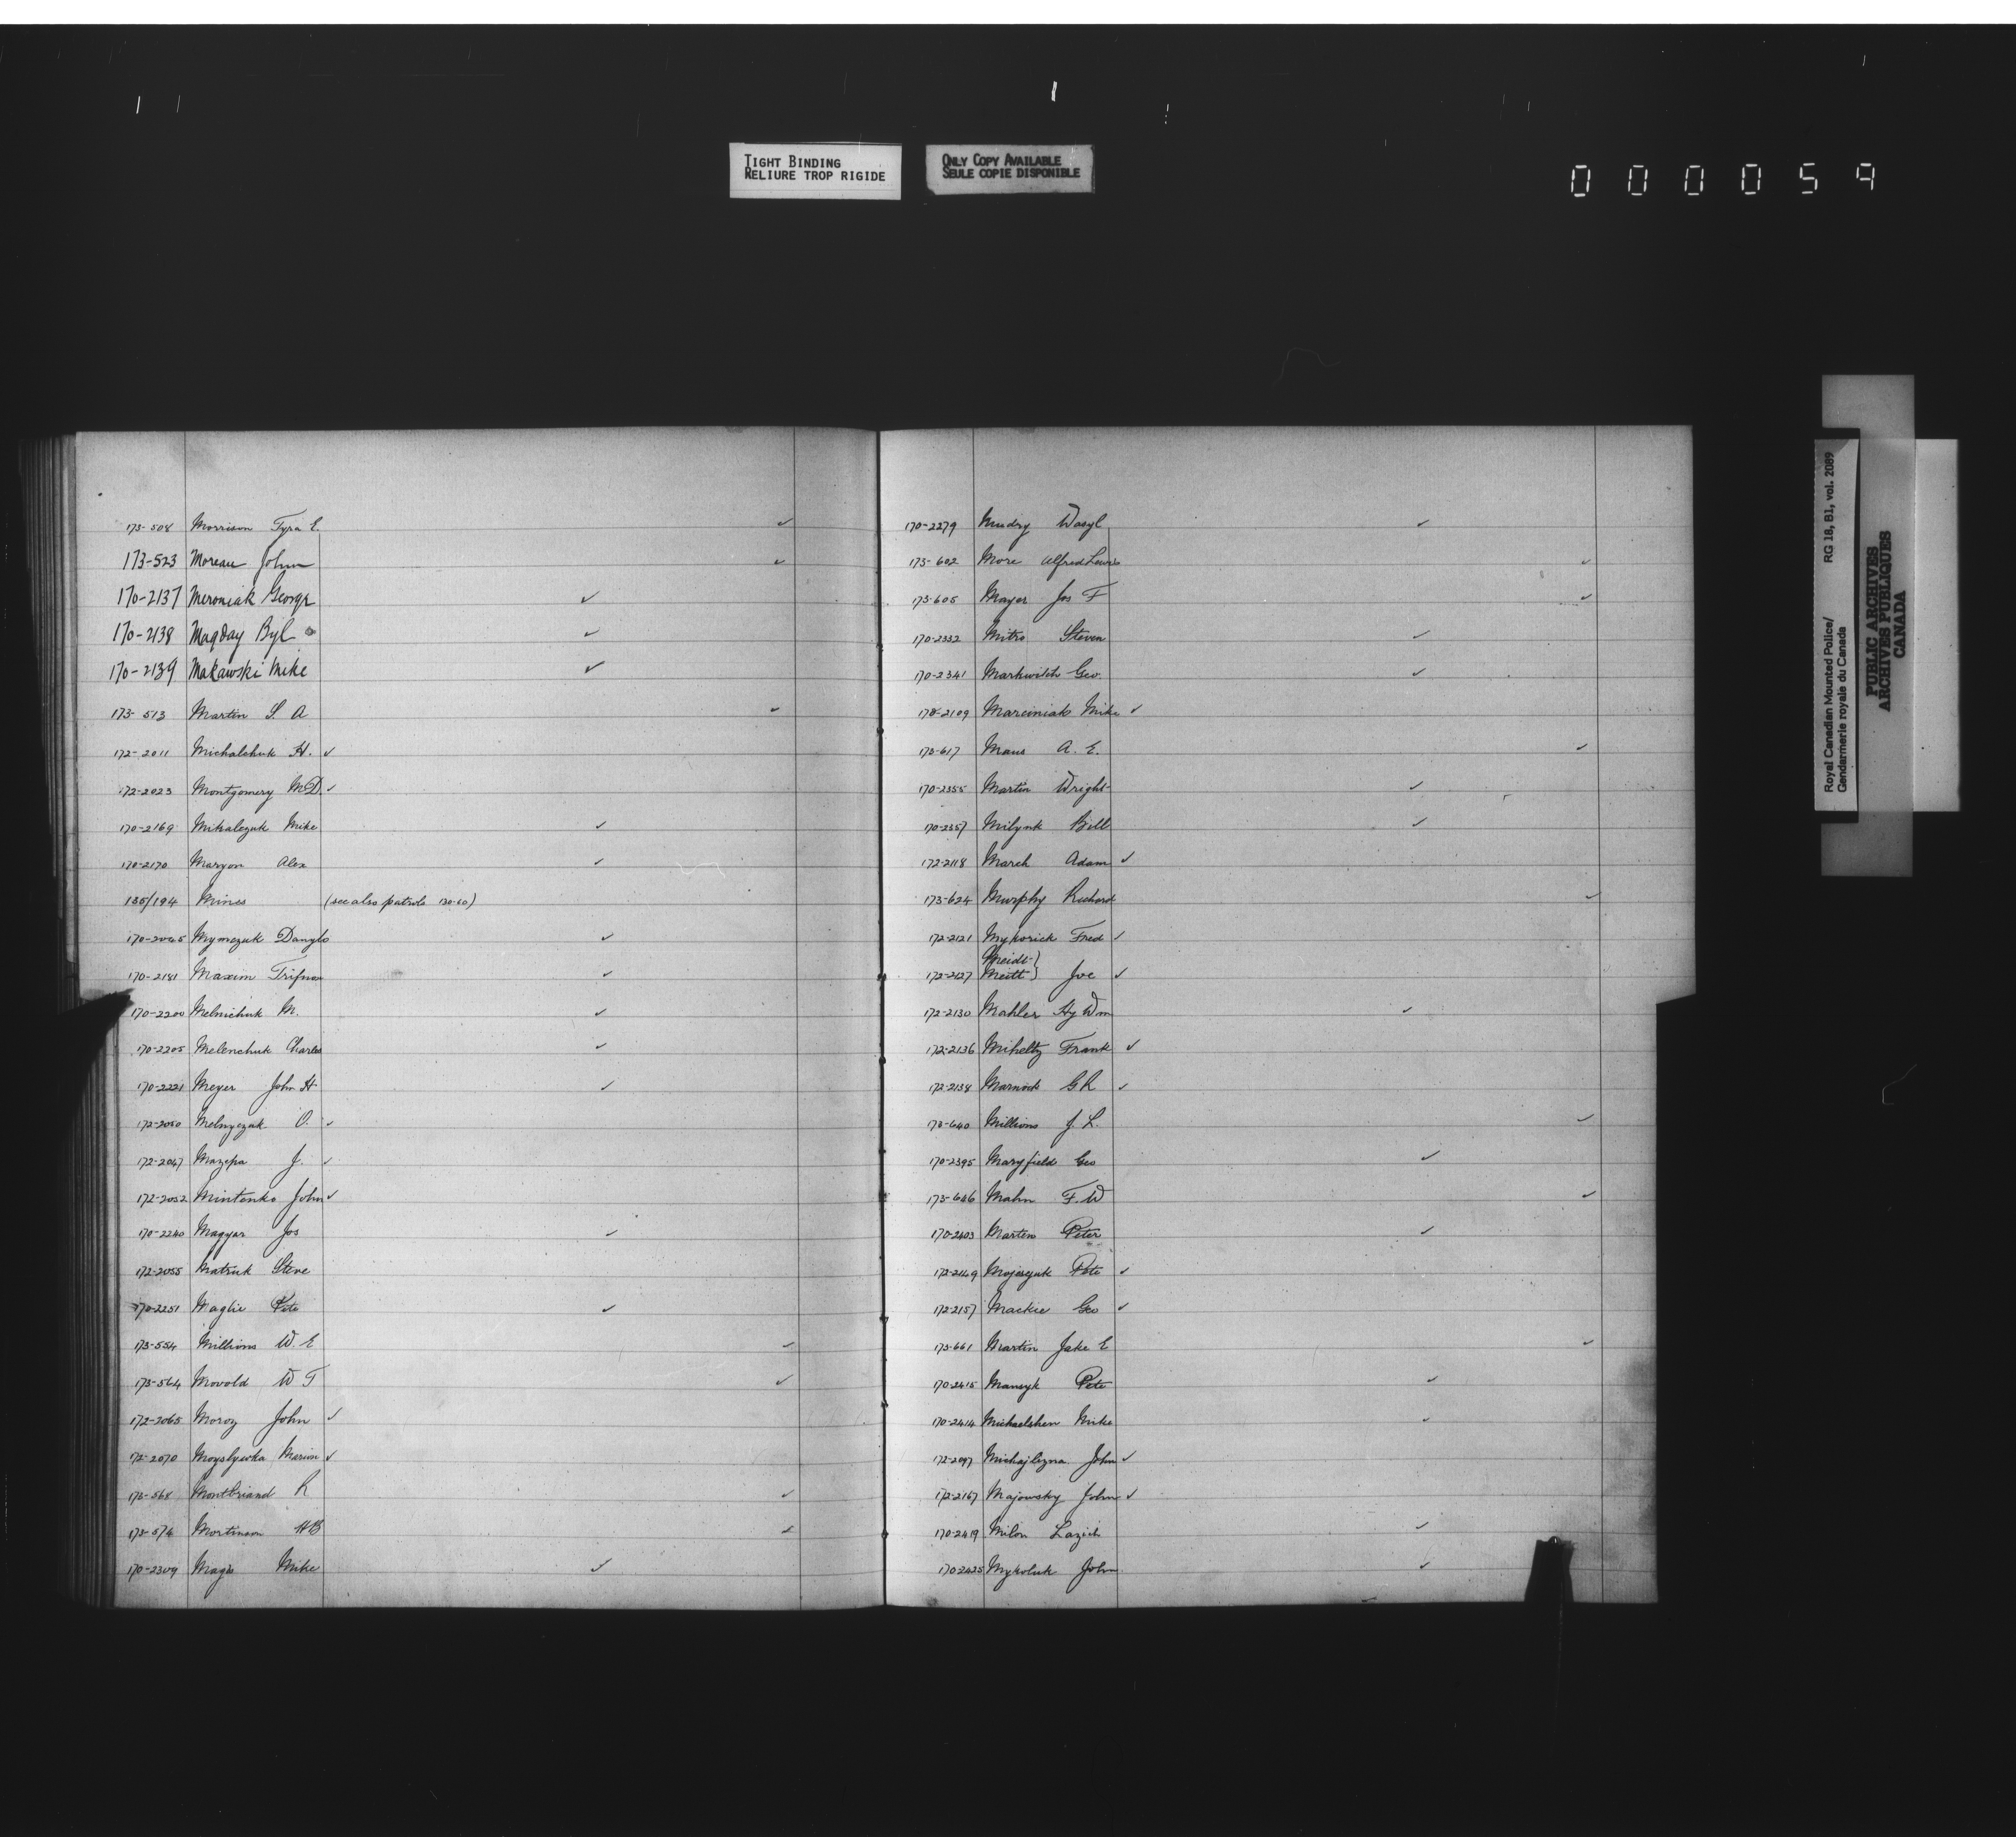 TIGHT BINDING
RELIURE TROP RIGIDE
ONLY COPY AVAILABLE
SEULE COPIE DISPONIBLE
000059
173-508 Morrison Tyra E. ✓
173-523 Moreau John ✓
170-2137 Meroniak George ✓
170-2138 Magday Byl ✓
170-2139 Makawski Mike ✓
173-513 Martin S. A ✓
172-2011 Michalchuk H. ✓
172-2023 Montgomery M.D. ✓
170-2169 Mihalczuk Mike ✓
170-2170 Maryon Alex ✓
135/194 Mines (see also patrols 130-60)
170-2045 Mymczuk Danylo ✓
170-2181 Maxim Trifnan ✓
170-2200 Melnichuk M. ✓
170-2205 Melenchuk Charles ✓
170-2221 Meyer John H ✓
172-2050 Melnyczuk O. ✓
172-2047 Mazepa J. ✓
172-2052 Mintenko John ✓
170-2240 Magyar Jos ✓
172-2055 Matruk Steve
170-2251 Maglie Pete ✓
173-554 Millions W. E ✓
173-564 Movold W T ✓
172-2065 Moroz John ✓
172-2070 Moyslywka Marion ✓
173-568 Montbriand R ✓
173-574 Mortinson HB ✓
170-2309 Magis Mike ✓
170-2279 Mudry Wasyl ✓
173-602 More Alfred Lewis ✓
173-605 Mayer Jos F ✓
170-2332 Mitro Steven ✓
170-2341 Markwitch Geo. ✓
172-2109 Marciniak Mike ✓
173-617 Maus A. E. ✓
170-2355 Martin Wright ✓
170-2357 Milynk Bill ✓
172-2118 March Adam ✓
173-624 Murphy Richard ✓
172-2121 Mykorick Fred ✓
Meidt }
172-2127 Meitt } Joe ✓
172-2130 Mahler Hy Wm ✓
172-2136 Miheltz Frank ✓
172-2138 Marnock G R ✓
173-640 Millions J. L. ✓
170-2395 Maryfield Geo ✓
173-646 Mahn F. W ✓
170-2403 Marten Peter ✓
172-2149 Mojesczuk Pete ✓
172-2157 Mackie Geo ✓
173-661 Martin Jake E ✓
170-2415 Mansyk Pete ✓
170-2414 Michaelshen Mike ✓
172-2097 Michajlizna John ✓
172-2167 Majowsky John ✓
170-2419 Milon Lazich ✓
170-2425 Mykoluk John ✓
Royal Canadian Mounted Police/
Gendarmerie royale du Canada
RG 18, B1, vol. 2089
PUBLIC ARCHIVES
ARCHIVES PUBLIQUES
CANADA